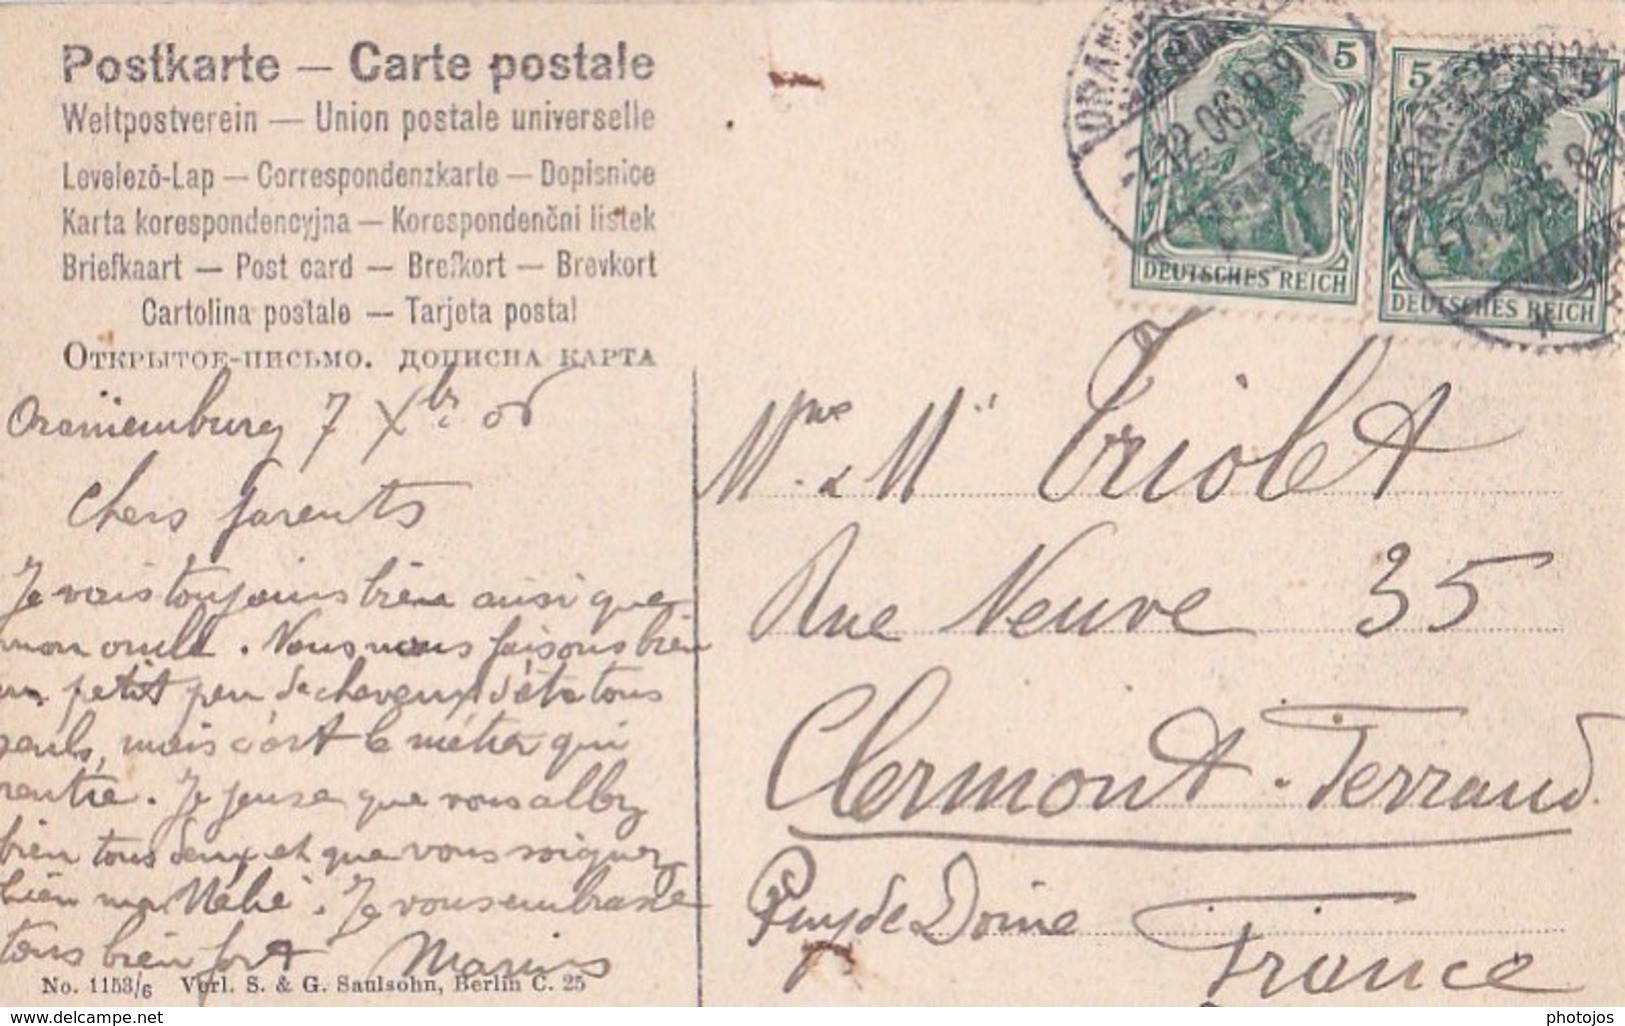 Postkarte — Carte postale
Weltpostverein — Union postale universelle
Levelező-Lap — Correspondenzkarte — Dopisnice
Karta korespondencyjna — Korespondenční listek
Briefkaart — Post card — Brefkort — Brevkort
Cartolina postale — Tarjeta postal
Открытое-письмо. дописна карта
5
DEUTSCHES REICH
7.12.06.8-9
5 5
DEUTSCHES REICH
Oraniemburg 7 Xbr 06
Chers parents
Je vais toujours bien ainsi que
mon oncle. Nous nous faisons bien
un petit peu de cheveux d'être tous
seuls, mais c'est le métier qui
rentre. Je pense que vous allez
bien tous deux et que vous soignez
bien ma Bébé. Je vous embrasse
tous bien fort Marius
Mme & Mr Triolet
Rue Neuve 35
Clermont-Ferrand
Puy de Dome
France
No. 1153/6 Verl. S. & G. Saulsohn, Berlin C. 25
www.delcampe.com
photojos